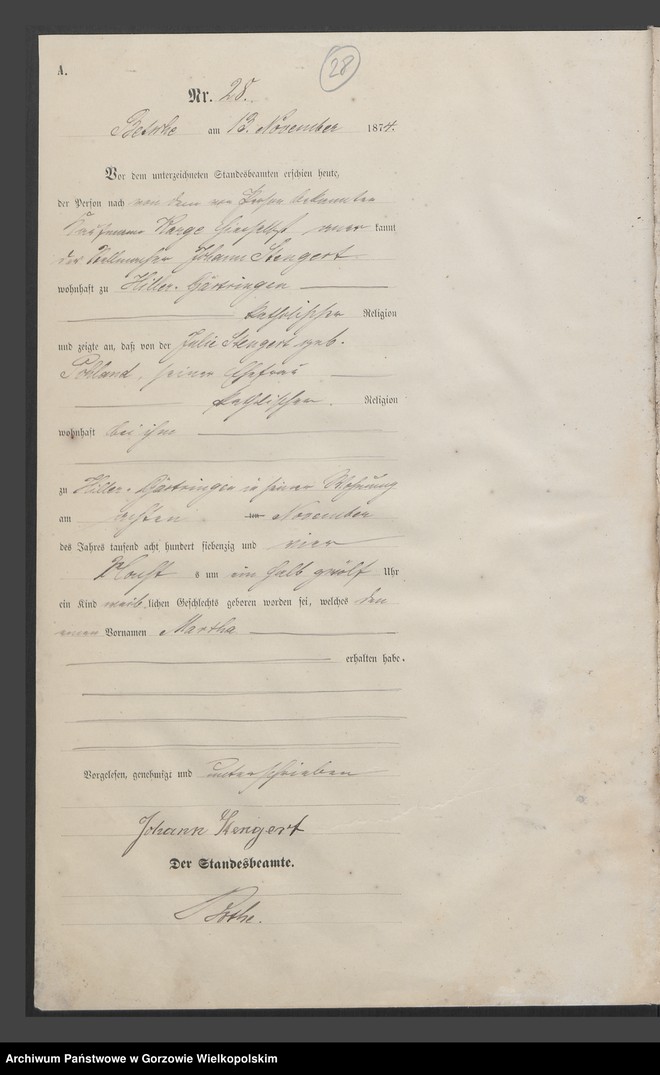 A.
28
Nr. 28.
am 13. November 1874.
Vor dem unterzeichneten Standesbeamten erschien heute,
der Person nach
Kaufmann Karge hierselbst anerkannt
der Stellmacher Johann Stengert
wohnhaft zu Hiller-Gärtringen
katholischer Religion
und zeigte an, daß von der Julie Stengert geb.
Pohland, seiner Ehefrau
katholischer Religion
wohnhaft bei ihm
zu Hiller-Gärtringen in seiner Wohnung
am achten ten November
des Jahres tausend acht hundert siebenzig und vier
um ein halb zwölf Uhr
ein Kind weiblichen Geschlechts geboren worden sei, welches den
einen Vornamen Martha
erhalten habe.
Vorgelesen, genehmigt und unterschrieben
Johann Stengert
Der Standesbeamte.
Archiwum Państwowe w Gorzowie Wielkopolskim